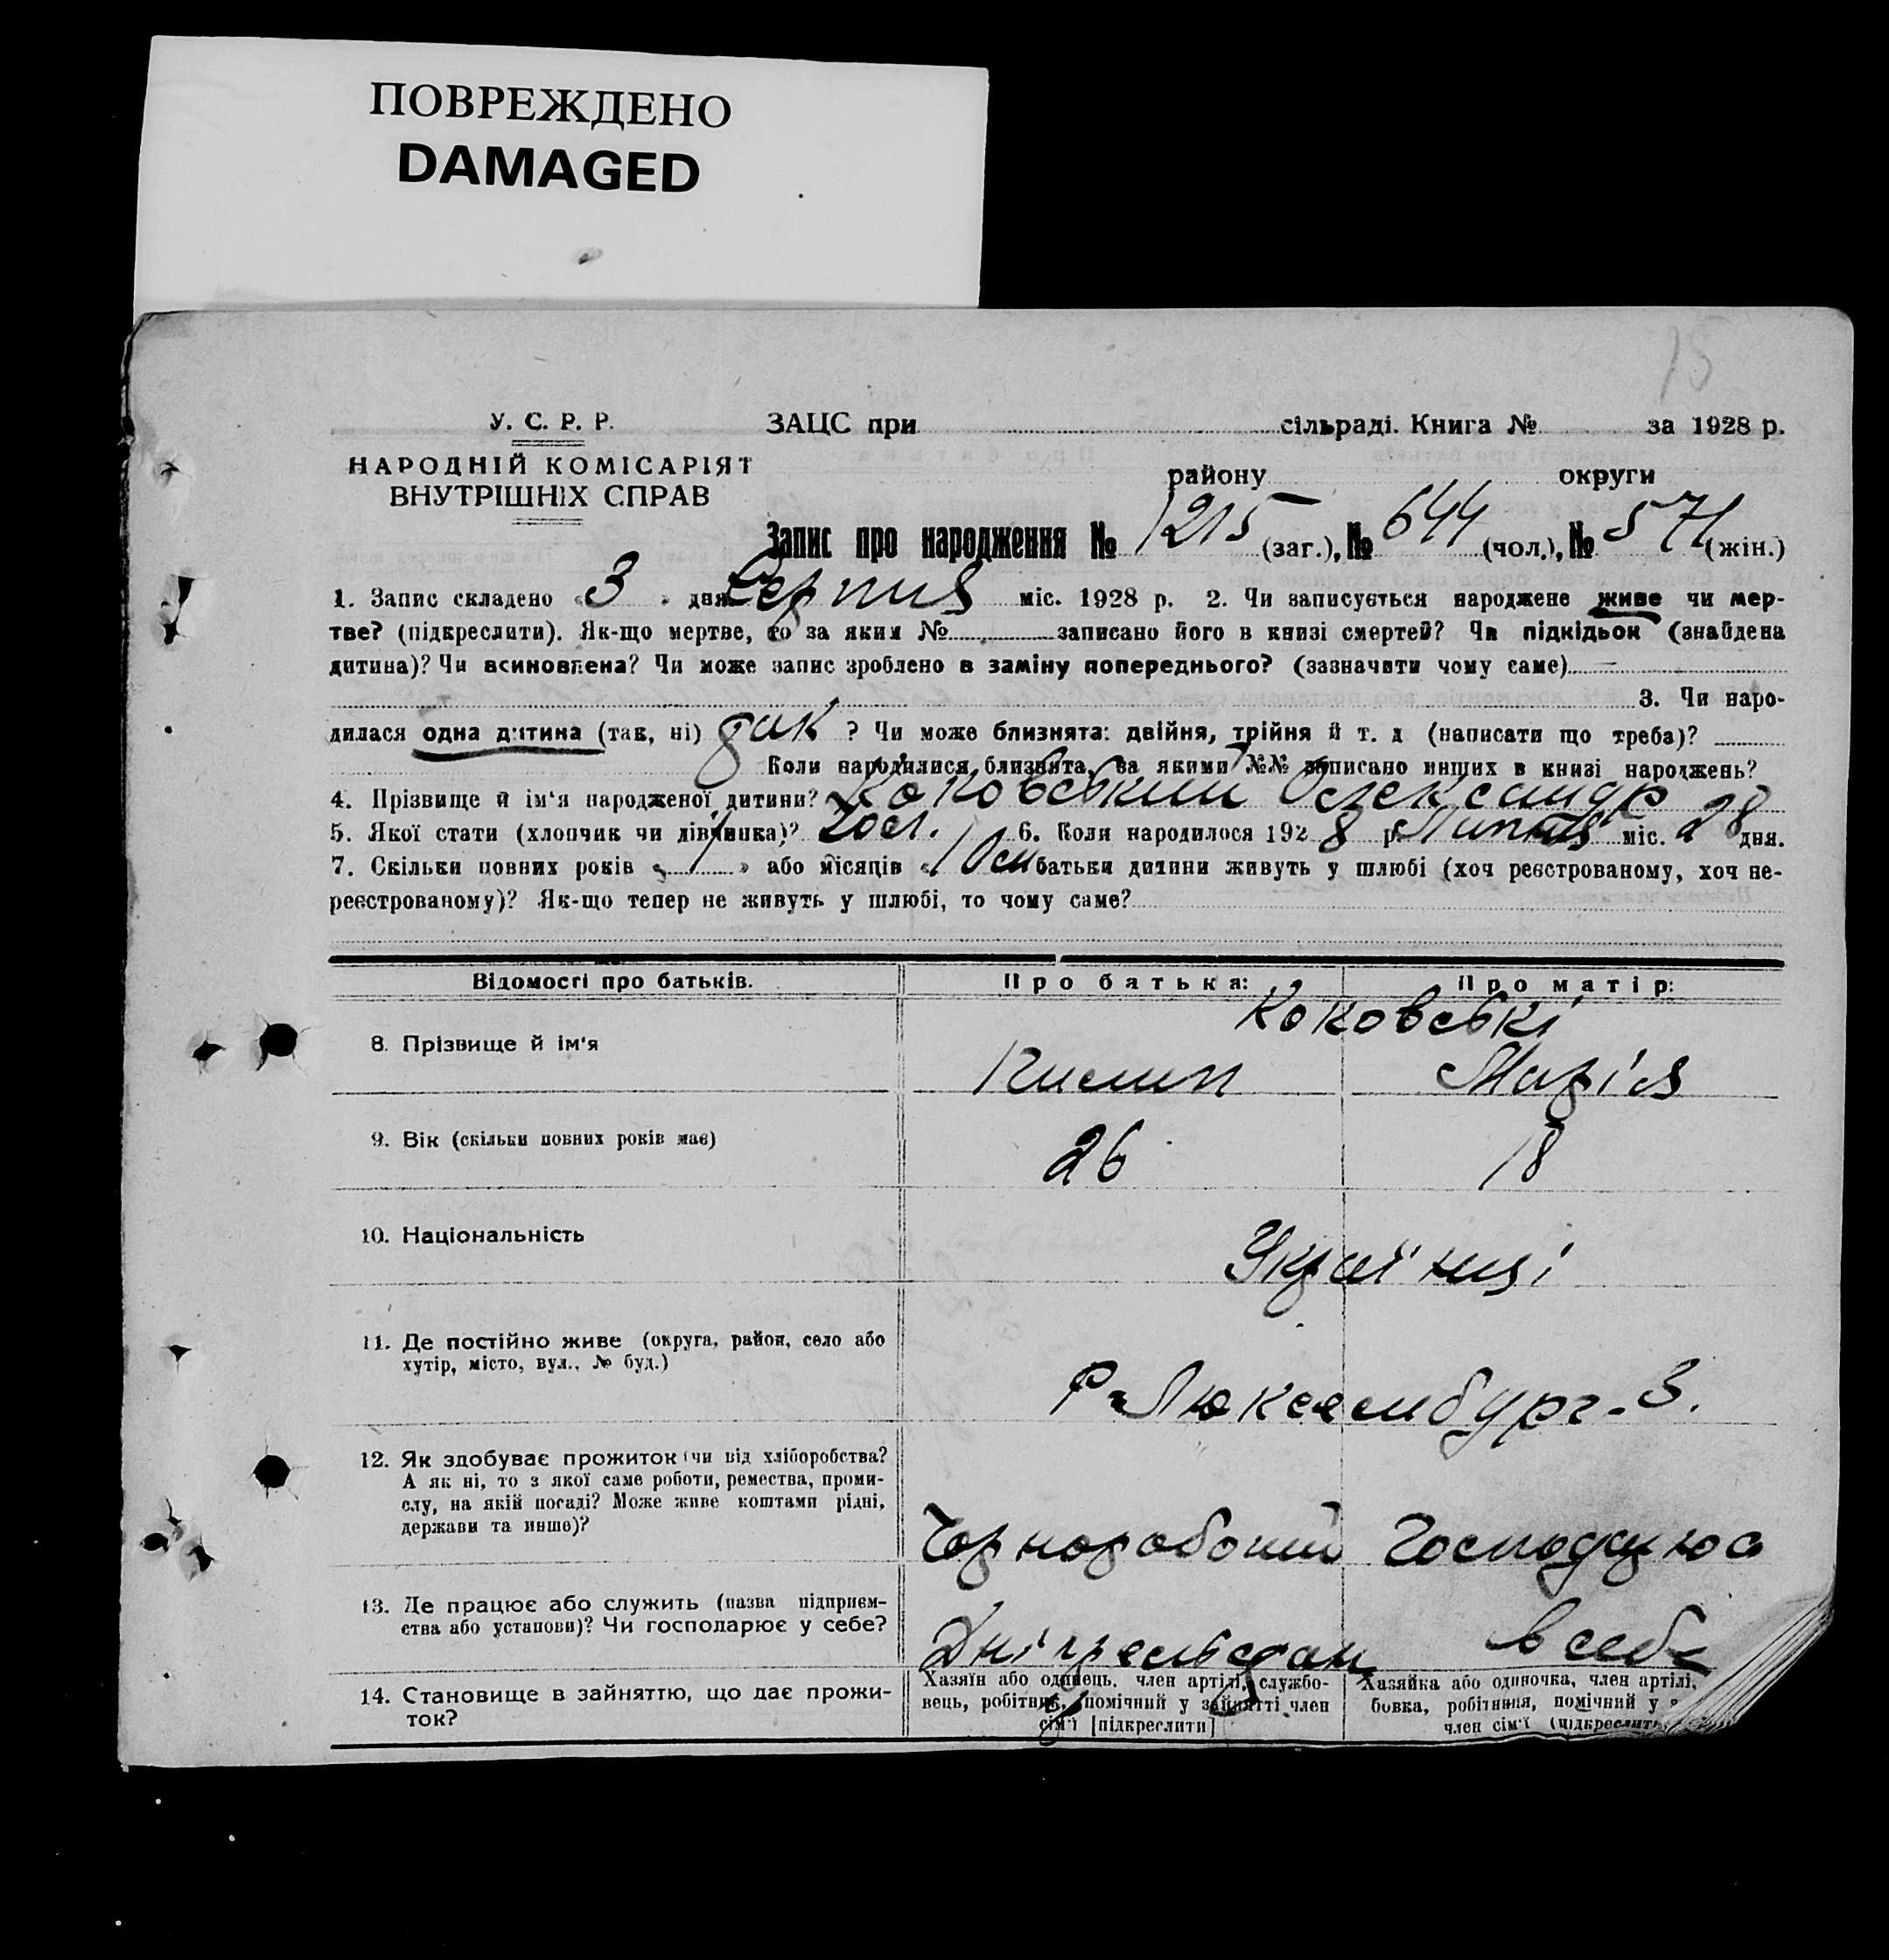 ПОВРЕЖДЕНО
DAMAGED
15
У. С. Р. Р.
НАРОДНІЙ КОМІСАРІЯТ
ВНУТРІШНІХ СПРАВ
ЗАЦС при сільраді. Книга № за 1928 р.
району округи
Запис про народження № 1215 (заг.), № 644 (чол.), № 571 (жін.)
1. Запис складено « 3 » дня Серпня міс. 1928 р. 2. Чи записується народжене живе чи мер-
тве? (підкреслити). Як-що мертве, то за яким № записано його в книзі смертей? Чи підкідьок (знайдена
дитина)? Чи всиновлена? Чи може запис зроблено в заміну попереднього? (зазначити чому саме)
3. Чи наро-
дилася одна дитина (так, ні) так ? Чи може близнята: двійня, трійня й т. д (написати що треба)?
Коли народилися близнята, за якими №№ записано инших в книзі народжень?
4. Прізвище й ім'я народженої дитини? Коковський Олександр
5. Якої стати (хлопчик чи дівчинка)? 6. Коли народилося 1928 р. Липня міс. 28 дня.
7. Скільки повних років « » або місяців « батьки дитини живуть у шлюбі (хоч реєстрованому, хоч не-
реєстрованому)? Як-що тепер не живуть у шлюбі, то чому саме?
Відомості про батьків. Про батька: Про матір:
Коковські
8. Прізвище й ім'я
Пилип Марія
9. Вік (скільки повних років має)
26 18
10. Національність
Українці
11. Де постійно живе (округа, район, село або
хутір, місто, вул., № буд.)
Р-Люксембург-3.
12. Як здобуває прожиток (чи від хліборобства?
А як ні, то з якої саме роботи, ремества, проми-
слу, на якій посаді? Може живе коштами рідні,
держави та инше)?
Чорноробочий Господарює
13. Де працює або служить (назва підприєм-
ства або установи)? Чи господарює у себе?
в себе
14. Становище в зайняттю, що дає прожи-
ток?
Хазяїн або одинець, член артілі, службо-
вець, робітник, помічний у зайнятті член
сім'ї [підкреслити]
Хазяйка або одиночка, член артілі,
бовка, робітниця, помічний у
член сім'ї (підкреслити